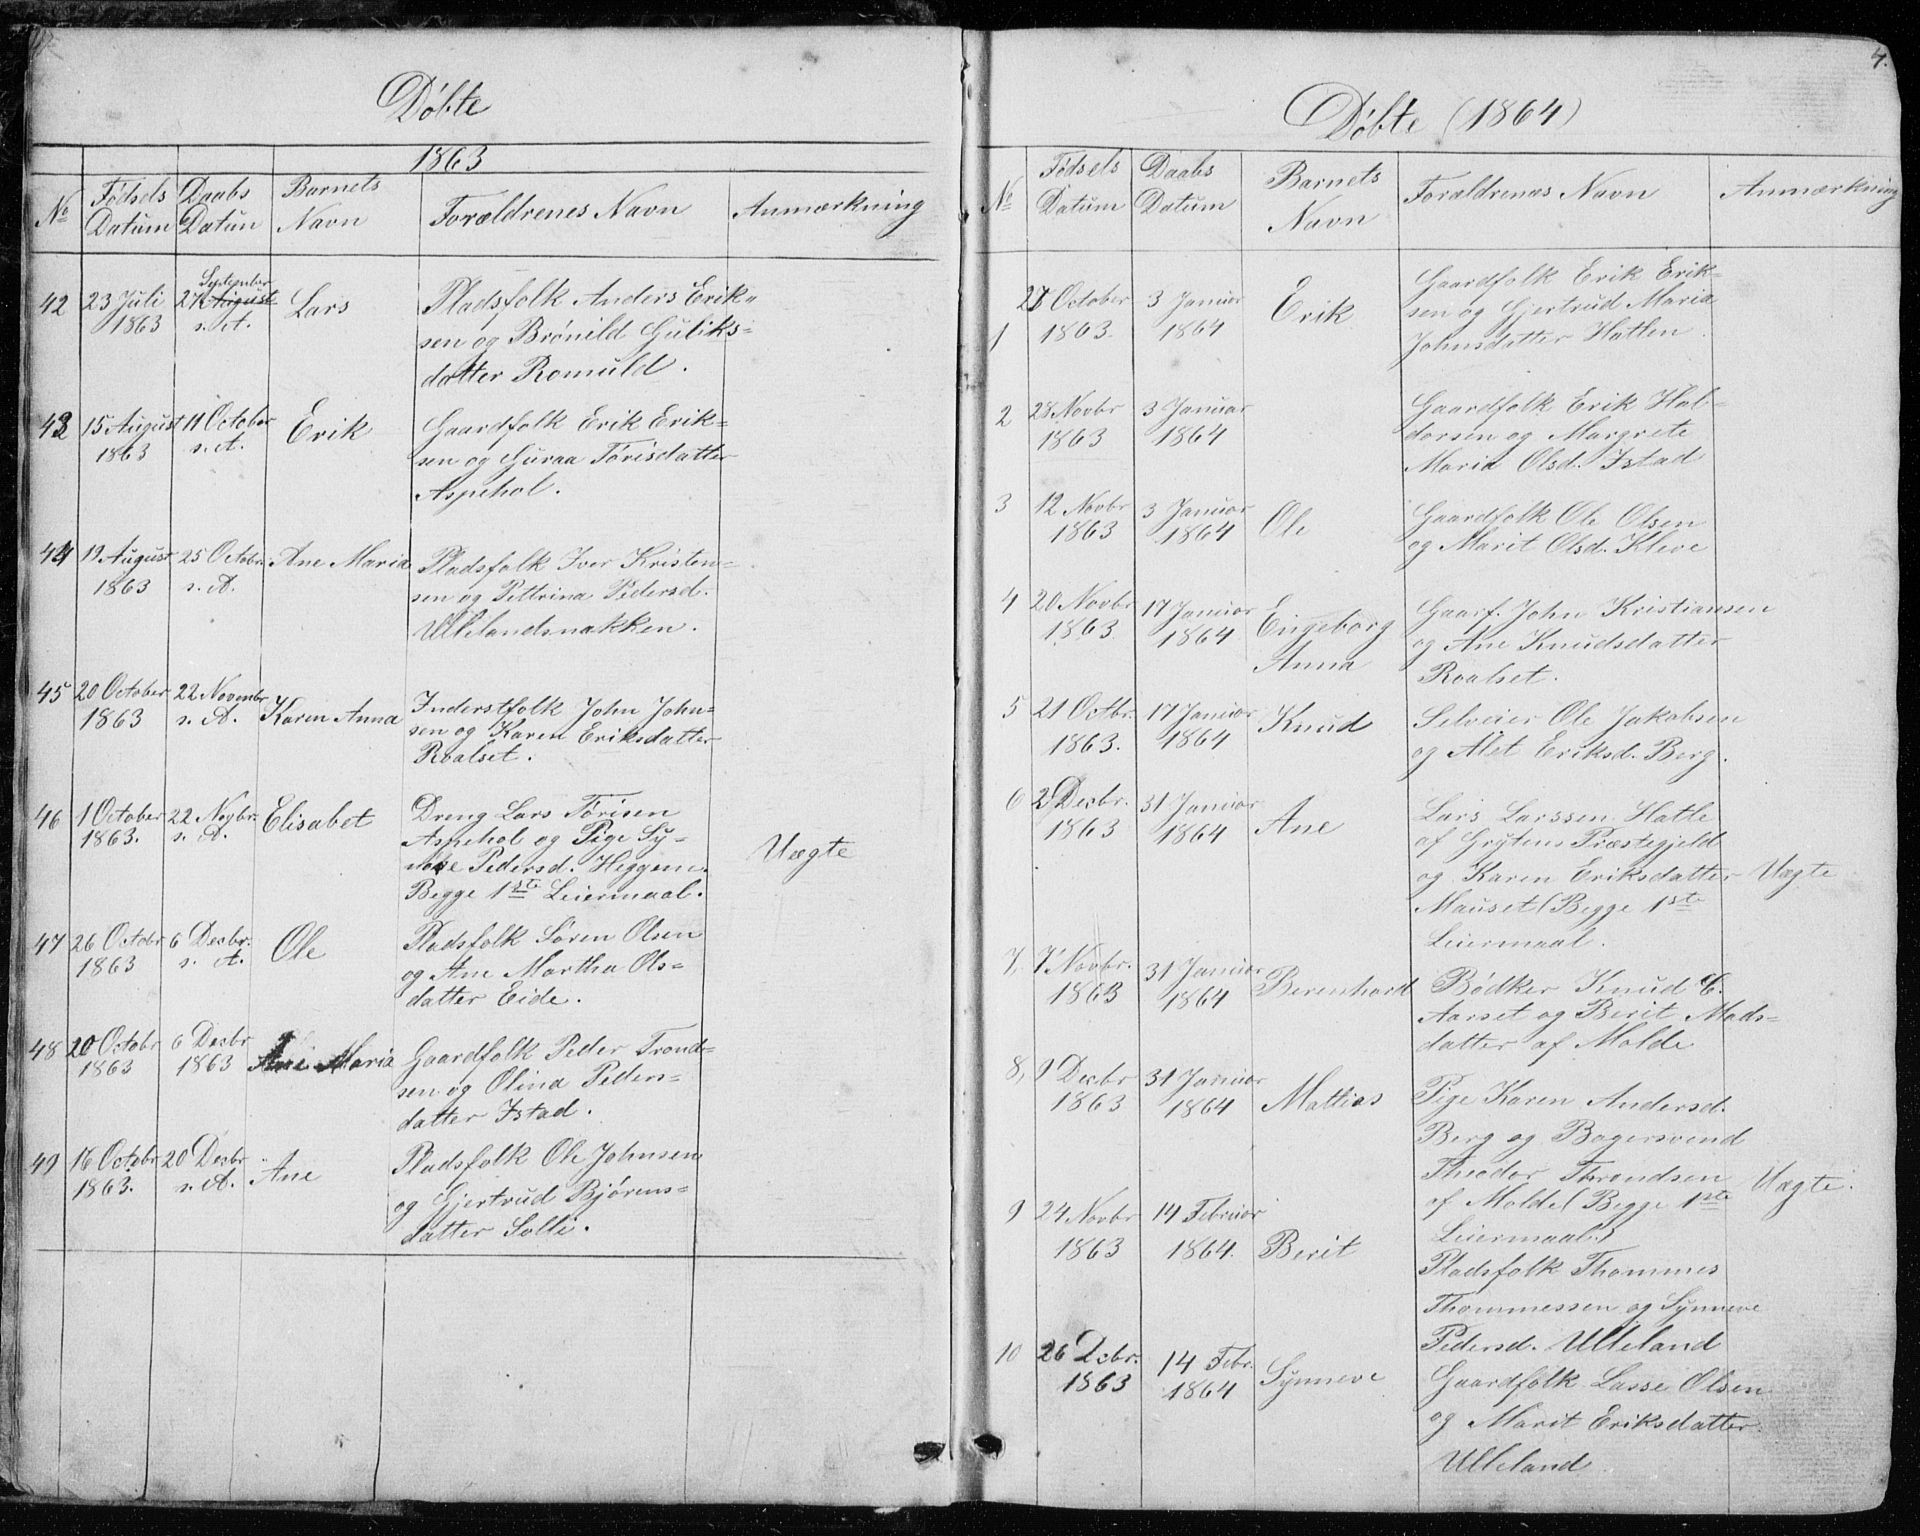 Döbte
1863
No
Födsels
Datum
Daabs
Datum
Barnets
Navn
Forældrenes Navn
Anmærkning
42
23 Juli
1863
September
27 August
s. A.
Lars
Pladsfolk Anders Erik-
sen og Brönild Guliks-
datter Romuld.
43
15 August
1863
11 October
s. A.
Erik
Gaardfolk Erik Erik-
sen og Guraa Törisdatter
Aspehol.
44
19 August
1863
25 Octobr.
s. A.
Ane Maria
Pladsfolk Iver Kristen-
sen og Pettrina Pedersd.
Ullelandsnakken.
45
20 October
1863
22 Novembr
s. A.
Karen Anna
Inderstfolk John John-
sen og Karen Eriksdatter
Roalset.
46
1 October
1863.
22 Novbr.
s. A.
Elisabet
Dreng Lars Törisen
Aspehol og Pige Sy-
Pedersd. Heggem.
Begge 1ste Leiermaal.
Uægte
47
26 Octobr
1863
6 Decbr.
s. A.
Ole
Pladsfolk Sören Olsen
og Ane Martha Ols-
datter Eide.
48
20 Octobr
1863
6 Decbr
1863
Ane Maria
Gaardfolk Peder Trond-
sen og Olina Peders-
datter Istad.
49
16 Octobr
1863.
20 Decbr
s. A.
Ane
Pladsfolk Ole Johnsen
og Gjertrud Bjørens-
datter Solli.
4.
Döbte (1864)
No
Födsels
Datum
Daabs
Datum
Barnets
Navn
Forældrenes Navn
Anmærkning
1
October
1863.
3 Januar
1864
Erik
Gaardfolk Erik Erik-
sen og Gjertrud Maria
Johnsdatter Hatlen.
2
28 Novbr
1863
3 Januar
1864
Gaardfolk Erik Hal-
dorsen og Margrete
Maria Olsd. Istad
3
12 Novbr
1863
3 Januar
1864
Ole
Gaardfolk Ole Olsen
og Marit Olsd. Kleve
4
20 Novbr
1863
17 Januar
1864
Engeborg
Anna
Gaarf. John Kristiansen
og Ane Knudsdatter
Roalset.
5
21 Octbr.
1863.
17 Januar
1864
Knud
Selveier Ole Jakobsen
og Alet Eriksd. Berg.
6
2 Decbr.
1863
31 Januar
1864
Ane
Lars Larssen Hatle
af Grytens Præstegjeld
og Karen Eriksdatter
Mauset (Begge 1ste
Leiermaal.
Uægte
7,
7 Novbr.
1863
31 Januar
1864
Berenhard
Bödker Knud C.
Aarset og Berit Mads-
datter af Molde
8,
9 Decbr
1863
31 Januar
1864
Mattias
Pige Karen Andersd.
Berg og Bagersvend
Theodor Throndsen
af Molde (Begge 1ste
Leiermaal.)
Uægte.
9
24 Novbr
1863
14 Februar
1864.
Berit
Pladsfolk Thommes
Thommessen og Synneve
Pedersd. Ulleland
10
26 Decbr.
1863
14 Febr.
1864
Synneve
Gaardfolk Lasse Olsen
og Marit Eriksdatter
Ulleland